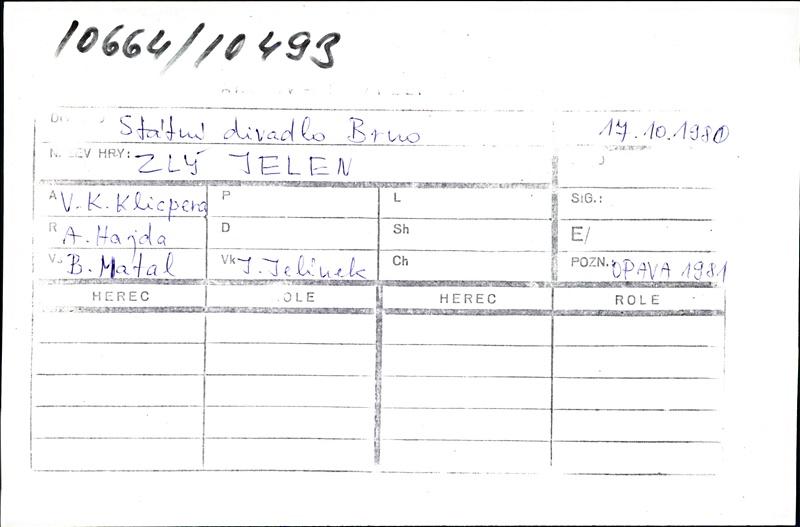 10664/10493
Státní divadlo Brno 17.10.1980
NÁZEV HRY: ZLÝ JELEN
A V. K. Klicpera P L SIG.:
R A. Hajda D Sh E/
B. Matal Vk J. Jelínek Ch POZN. OPAVA 1981
HEREC ROLE HEREC ROLE